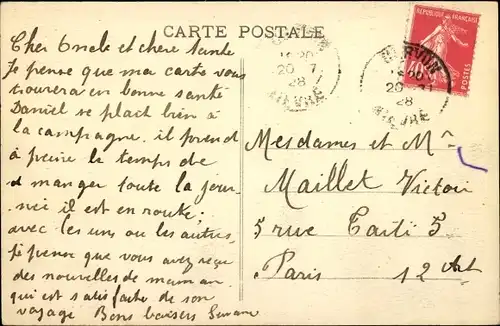 CARTE POSTALE
Cher Oncle et chère Tante
Je pense que ma carte vous
trouvera en bonne santé
Daniel se plait bien à
la campagne. il prend
à peine le temps de
manger toute la jour-
née il est en route,
avec les uns ou les autres,
je pense que vous avez reçue
des nouvelles de maman
qui est satisfaite de son
voyage Bons baisers
20 - 7
28
NIEVRE
REPUBLIQUE FRANÇAISE
POSTES
20 - 7
28
NIEVRE
Mesdames et Mr
Maillet Victor
5 rue 5
Paris 12